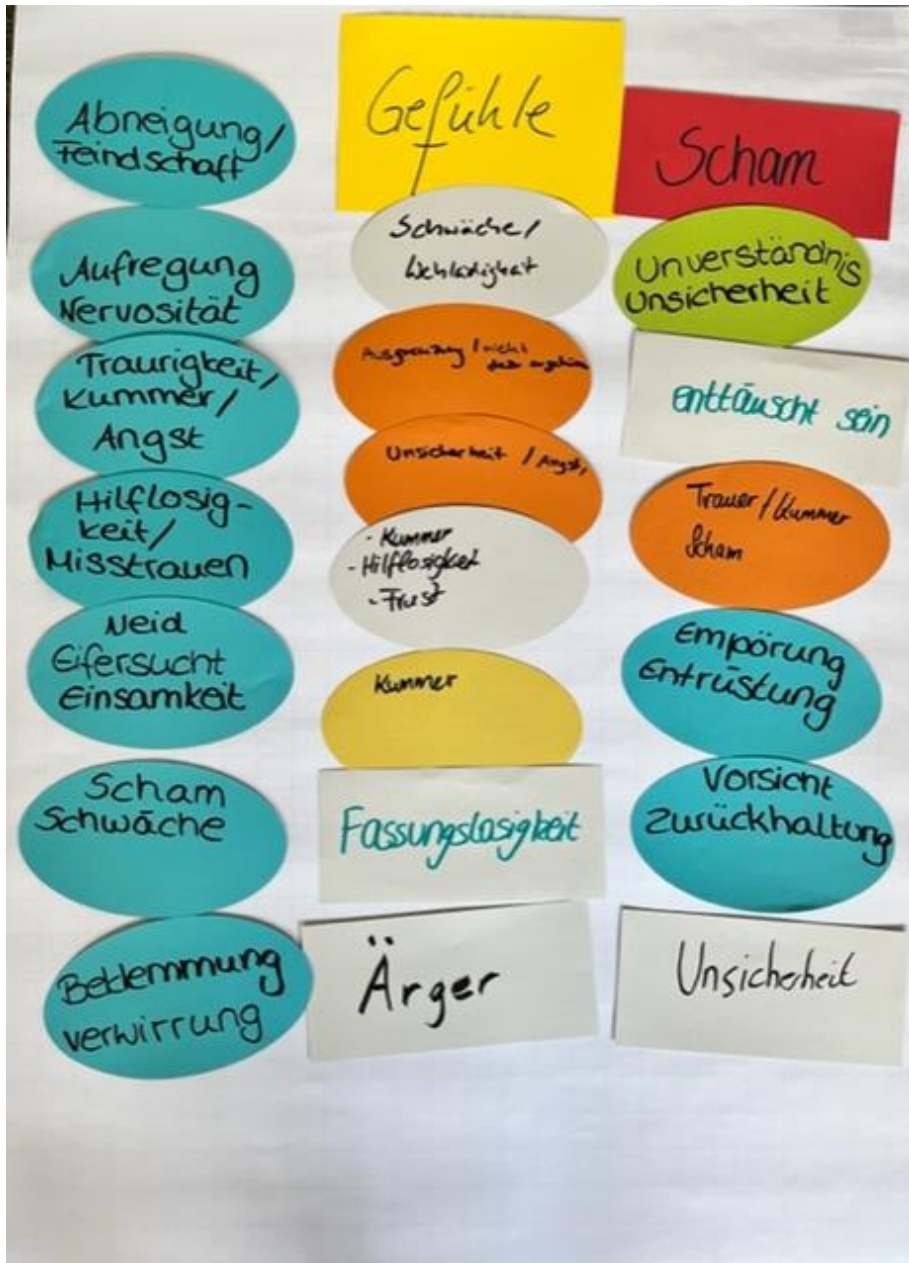 Gefühle
Abneigung/
Feindschaft
Aufregung
Nervosität
Traurigkeit/
Kummer/
Angst
Hilflosig-
keit/
Misstrauen
Neid
Eifersucht
Einsamkeit
Scham
Schwäche
Beklemmung
Verwirrung
Schwäche/
Ausgrenzung / nicht
Unsicherheit / Angst,
- Kummer
- Hilflosigkeit
- Frust
Kummer
Fassungslosigkeit
Ärger
Scham
Unverständnis
Unsicherheit
enttäuscht sein
Trauer/Kummer
Scham
Empörung
Entrüstung
Vorsicht
Zurückhaltung
Unsicherheit